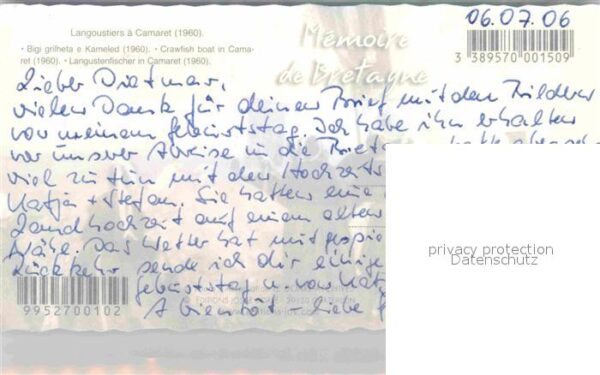 Langoustiers à Camaret (1960).
• Bigi grilheta e Kameled (1960). • Crawfish boat in Cama-
ret (1960). • Langustenfischer in Camaret (1960).
06.07.06
3 389570 001509
Mémoire
de Bretagne
Lieber Dietmar,
vielen Dank für deinen Brief mit den Bildern
von meinem Geburtstag. Ich habe ihn erhalten
vor unserer Abreise in die
viel zu tun mit den Hochzeits
Katja + Stefan. Sie hatten eine
Landhochzeit auf einem alten
Nähe. Das Wetter hat mitgespie
Rückkehr sende ich dir einige
Geburtstag u. von
A bientôt – Liebe
9952700102
privacy protection
Datenschutz